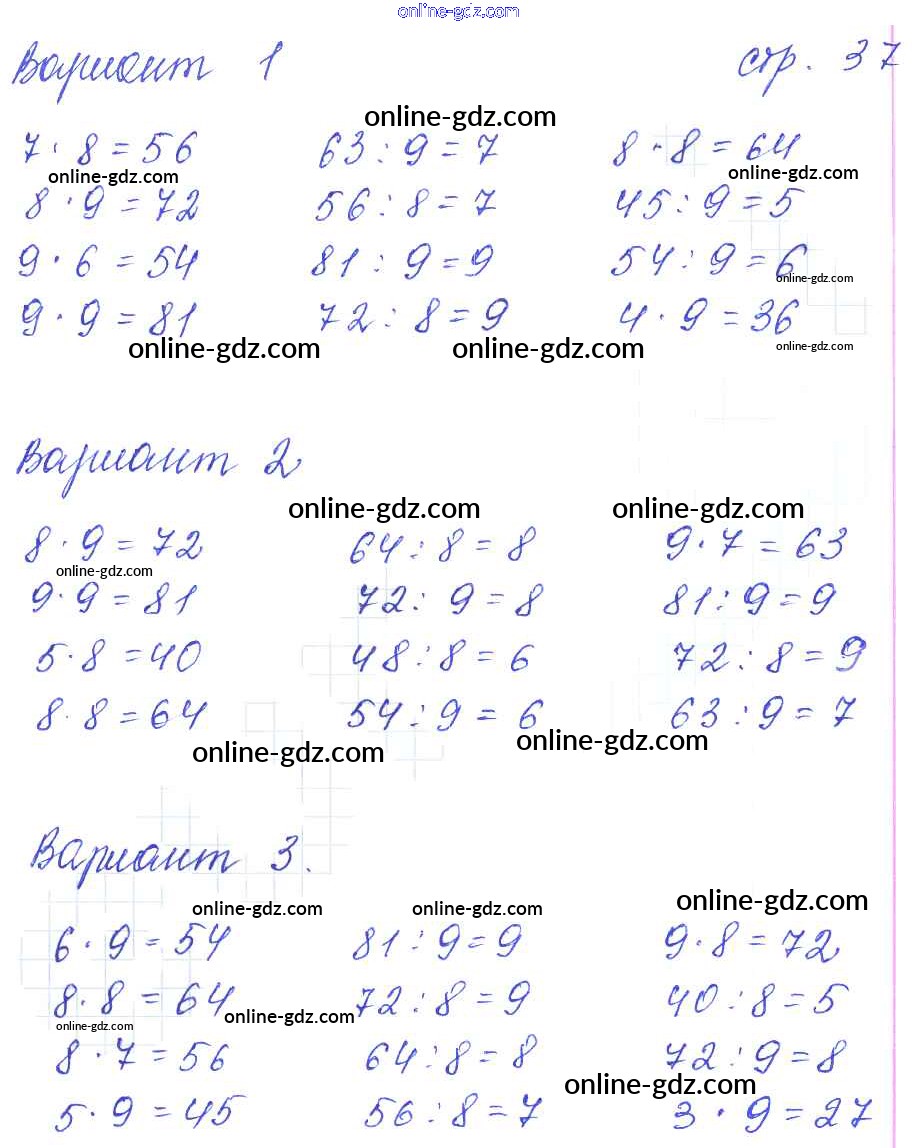 online-gdz.com
Вариант 1 стр. 37
online-gdz.com
7 · 8 = 56 63 : 9 = 7 8 · 8 = 64
online-gdz.com online-gdz.com
8 · 9 = 72 56 : 8 = 7 45 : 9 = 5
9 · 6 = 54 81 : 9 = 9 54 : 9 = 6
online-gdz.com
9 · 9 = 81 72 : 8 = 9 4 · 9 = 36
online-gdz.com online-gdz.com online-gdz.com
Вариант 2
online-gdz.com online-gdz.com
8 · 9 = 72 64 : 8 = 8 9 · 7 = 63
online-gdz.com
9 · 9 = 81 72 : 9 = 8 81 : 9 = 9
5 · 8 = 40 48 : 8 = 6 72 : 8 = 9
8 · 8 = 64 54 : 9 = 6 63 : 9 = 7
online-gdz.com online-gdz.com
Вариант 3.
online-gdz.com online-gdz.com online-gdz.com
6 · 9 = 54 81 : 9 = 9 9 · 8 = 72
8 · 8 = 64 72 : 8 = 9 40 : 8 = 5
online-gdz.com online-gdz.com
8 · 7 = 56 64 : 8 = 8 72 : 9 = 8
online-gdz.com
5 · 9 = 45 56 : 8 = 7 3 · 9 = 27